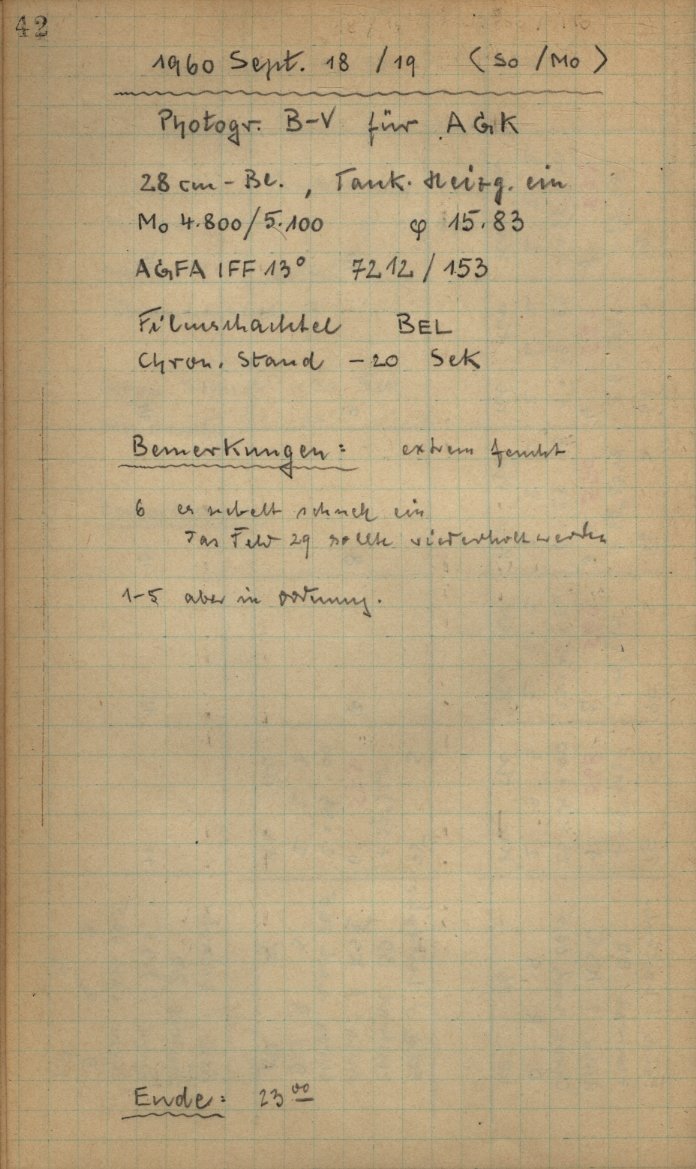 42
1960 Sept. 18 / 19 (So / Mo)
Photogr. B-V für AGK
28 cm - Bl., Tauk. Heizg. ein
Mo 4.800/5.100 φ 15.83
AGFA IFF 13° 7212 / 153
Filmschachtel BEL
Chron. Stand -20 Sek
Bemerkungen: extrem feucht
6 es nebelt schnell ein
Das Feld 29 sollte wiederholt werden
1-5 aber in Ordnung.
Ende: 23 00